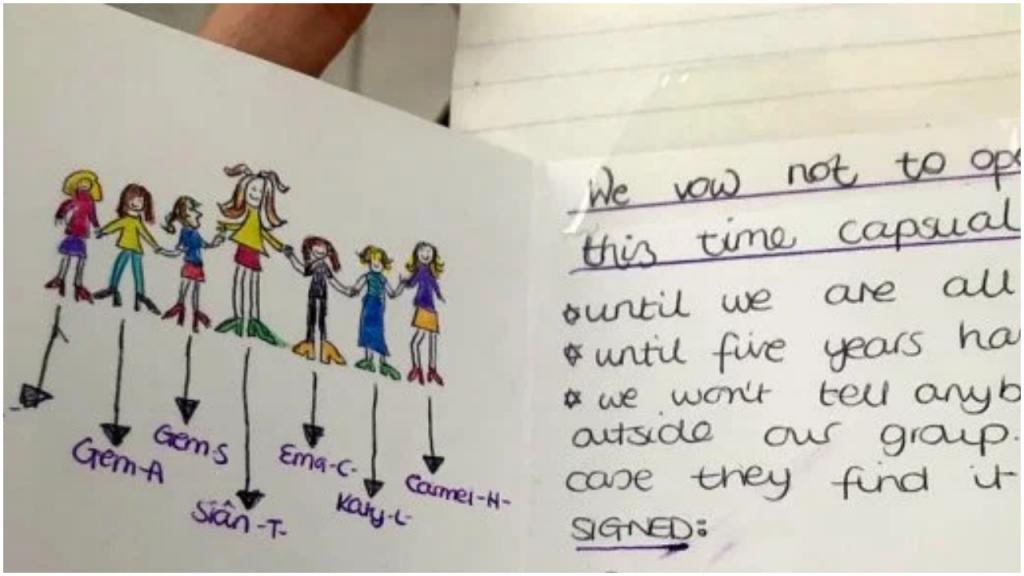 Gem-A
Gem-S
Siân-T-
Ema-C-
Katy-L-
Carmel-H-
We vow not to ope
this time capsual
until we are all
until five years ha
we won't tell anyb
outside our group.
case they find it
SIGNED: